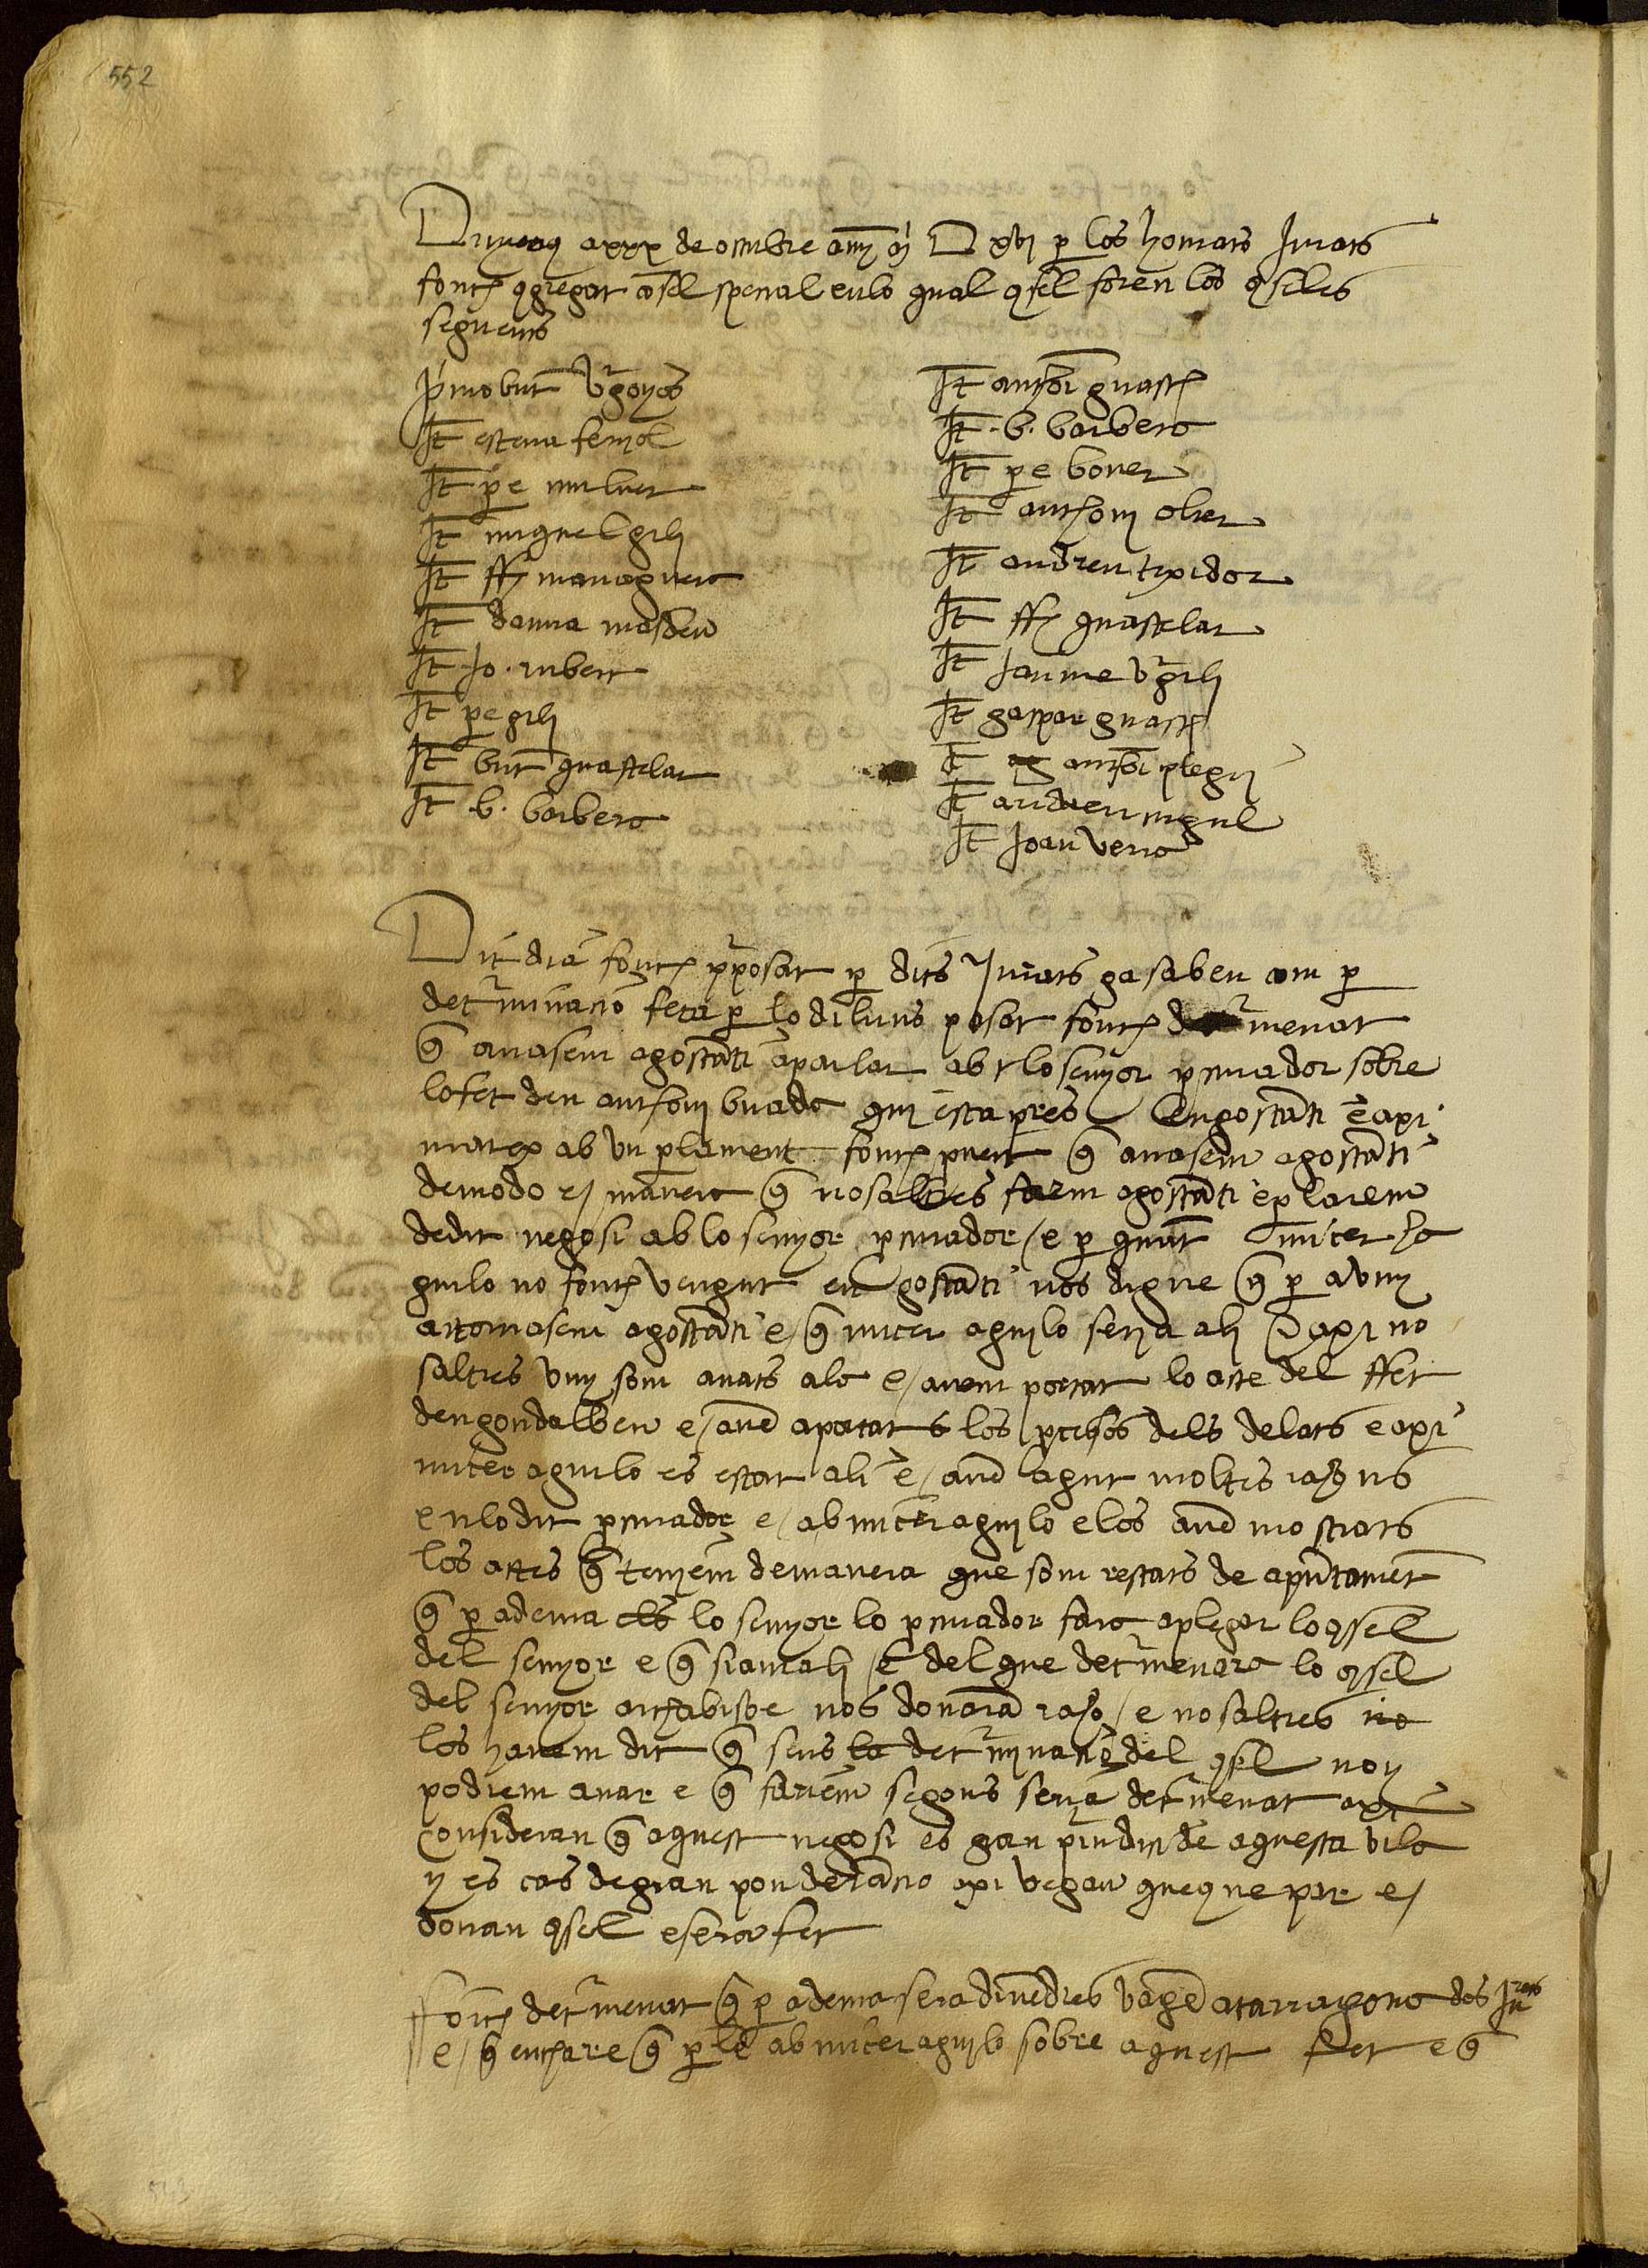 552
Dijmenge a xxx de octubre any M D xvj per los honrats Jurats
fonch cōgregat cōsel special en lo qual cōsel foren los cōsellers
seguents
primo berñt virgonyos
It esteva feriol
It pere muluet
It miquel gili
It ffr managuera
It dauna masdeu
It Jo. rubert
It pe gili
It berñt guastelar
It b. barbera
It anthoni guasch
It b. barbera
It pere boner
It anthoni oliver
It andreu tixidor
It ffr guastelar
It Jaume virgili
It gaspar guasch
It anthoni plegri
It andreu mgnl
It Joan vera
Dit dia fonch pposat p dits Jurats ja saben com p
detminacio feta p lo diluns pasat fonch detmenat
q anasem a gostanti a parlar ab lo senyor pcurador sobre
lo fet den anthoni buada qui esta pres en gostanti e axi
matex ab un plament fonch q anasem a gostanti
de modo e manera q nosaltres forem a gostanti e plarem
de dit negosi ab lo senyor pcurador e p quāt micer ha
guilo no fonch vengut en gostanti nos digue q p avuy
attornasem a gostanti e q micer aguilo seria ali e axi no
saltres vuy som anats ala e avem portat lo acte del ffet
den gondalbeu e avē aportat los pcesos dels delats e axi
micer aguilo es estat ali e avē agut moltes rahons
en lo dit pcurador e ab micer aguilo e los avē mostrats
los actes q teniem de manera que som restats de apūtamēt
q p a dema lo senyor lo pcurador fara aplegar lo cōsel
del senyor e q siam ali e del que detmenara lo cōsel
del senyor archabisbe nos donarā raho e nosaltres no
los havem dit q sens la detminatio del cōsel noy
podiem anar e q fariem segons seria detmenat axi
Consideran q aquest negosi es gran pjudisi de aquesta vila
y es cas de gran ponderatio axi vegau queus ne par e
donau cōsel e sera fet
Fonch detmenat q p a dema sera divēdres vagē a tarragona dos Jurats
e q enchare q ple ab micer aguilo sobre aquest fet e q